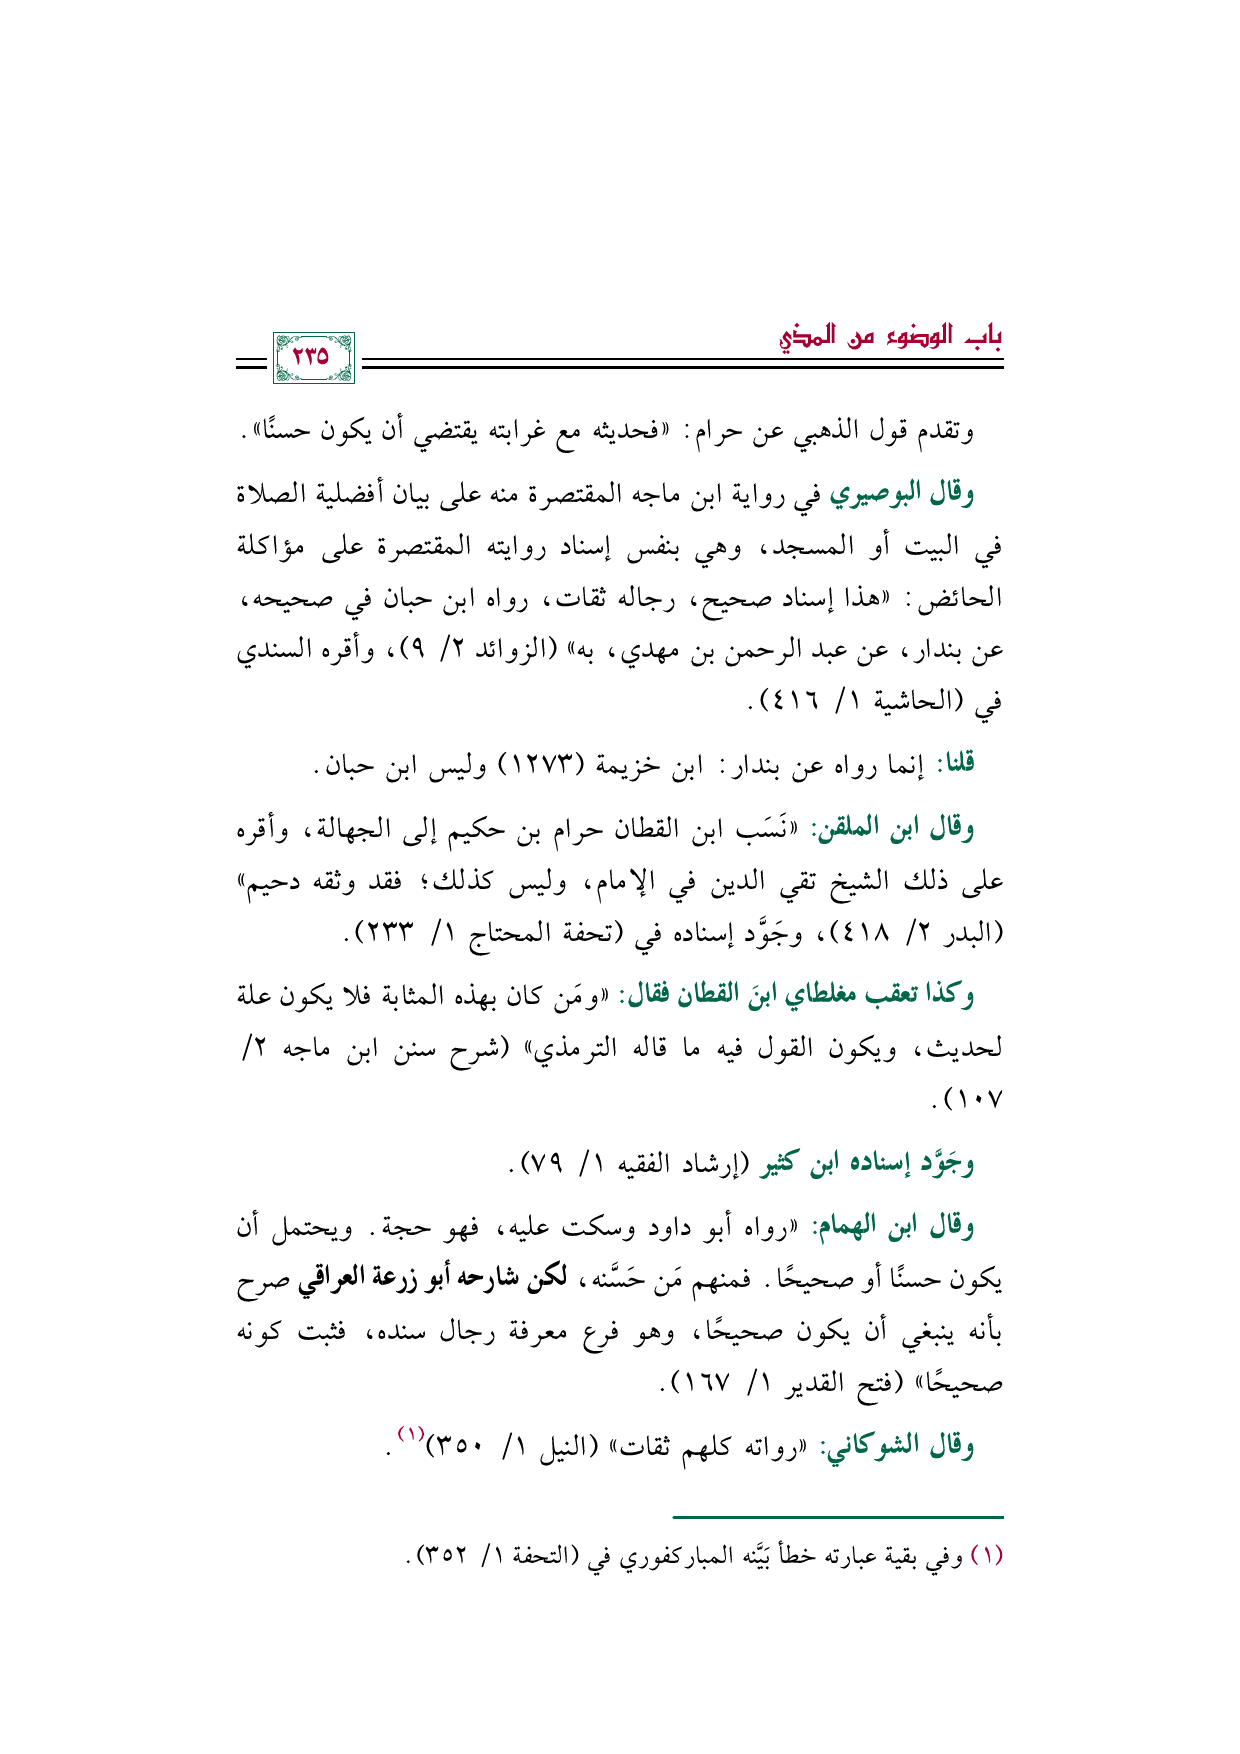 باب الوضوء من المذي
٢٣٥
وتقدم قول الذهبي عن حرام: «فحديثه مع غرابته يقتضي أن يكون حسنًا».
وقال البوصيري في رواية ابن ماجه المقتصرة منه على بيان أفضلية الصلاة
في البيت أو المسجد، وهي بنفس إسناد روايته المقتصرة على مؤاكلة
الحائض: «هذا إسناد صحيح، رجاله ثقات، رواه ابن حبان في صحيحه،
عن بندار، عن عبد الرحمن بن مهدي، به» (الزوائد ٢/ ٩)، وأقره السندي
في (الحاشية ١/ ٤١٦).
قلنا: إنما رواه عن بندار: ابن خزيمة (١٢٧٣) وليس ابن حبان.
وقال ابن الملقن: «نَسَب ابن القطان حرام بن حكيم إلى الجهالة، وأقره
على ذلك الشيخ تقي الدين في الإمام، وليس كذلك؛ فقد وثقه دحيم»
(البدر ٢/ ٤١٨)، وجَوَّد إسناده في (تحفة المحتاج ١/ ٢٣٣).
وكذا تعقب مغلطاي ابنَ القطان فقال: «ومَن كان بهذه المثابة فلا يكون علة
لحديث، ويكون القول فيه ما قاله الترمذي» (شرح سنن ابن ماجه ٢/
١٠٧).
وجَوَّد إسناده ابن كثير (إرشاد الفقيه ١/ ٧٩).
وقال ابن الهمام: «رواه أبو داود وسكت عليه، فهو حجة. ويحتمل أن
يكون حسنًا أو صحيحًا. فمنهم مَن حَسَّنه، لكن شارحه أبو زرعة العراقي صرح
بأنه ينبغي أن يكون صحيحًا، وهو فرع معرفة رجال سنده، فثبت كونه
صحيحًا» (فتح القدير ١/ ١٦٧).
وقال الشوكاني: «رواته كلهم ثقات» (النيل ١/ ٣٥٠)(١).
(١) وفي بقية عبارته خطأ بَيَّنه المباركفوري في (التحفة ١/ ٣٥٢).